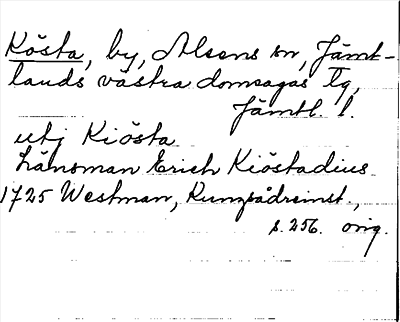 Kösta, by, Alsens sn, Jämt-
lands västra domsagas tg,
Jämtl. l.
utj Kiösta
Länsman Erich Kiöstadius
1725 Westman, 
s. 256. orig.